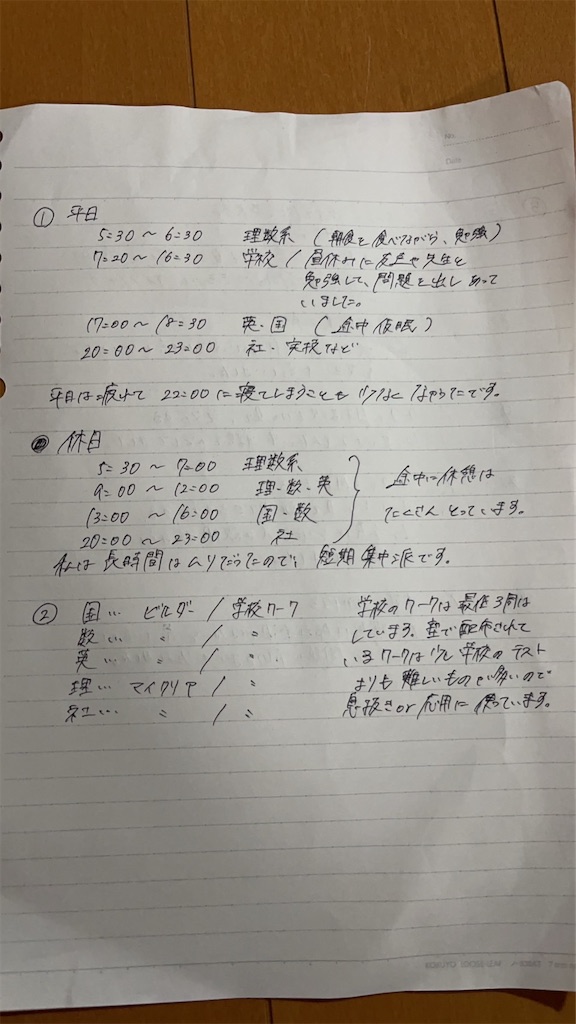 No.
Date
① 平日
5:30 ～ 6:30 理数系 (朝食を食べながら、勉強)
7:20 ～ 16:30 学校 / 昼休みに友戸や先生と
勉強して、問題を出しあって
いました。
17:00 ～ 18:30 英・国 (途中仮眠)
20:00 ～ 23:00 社・実技など
平日は疲れて 22:00 に寝てしまうことも少なくなかったです。
休日
5:30 ～ 7:00 理数系
9:00 ～ 12:00 理・数・英
13:00 ～ 16:00 国・数
20:00 ～ 23:00 社
途中に休憩は
たくさんとっています。
私は長時間はムリだったので、短期集中派です。
② 国… ビルダー / 学校ワーク
数… 〃 / 〃
英… 〃 / 〃
理… マイクリア / 〃
社… 〃 / 〃
学校のワークは最低3周は
しています。塾で配布されて
いるワークは少し学校のテスト
よりも難しいものが多いので
息抜き or 応用に使っています。